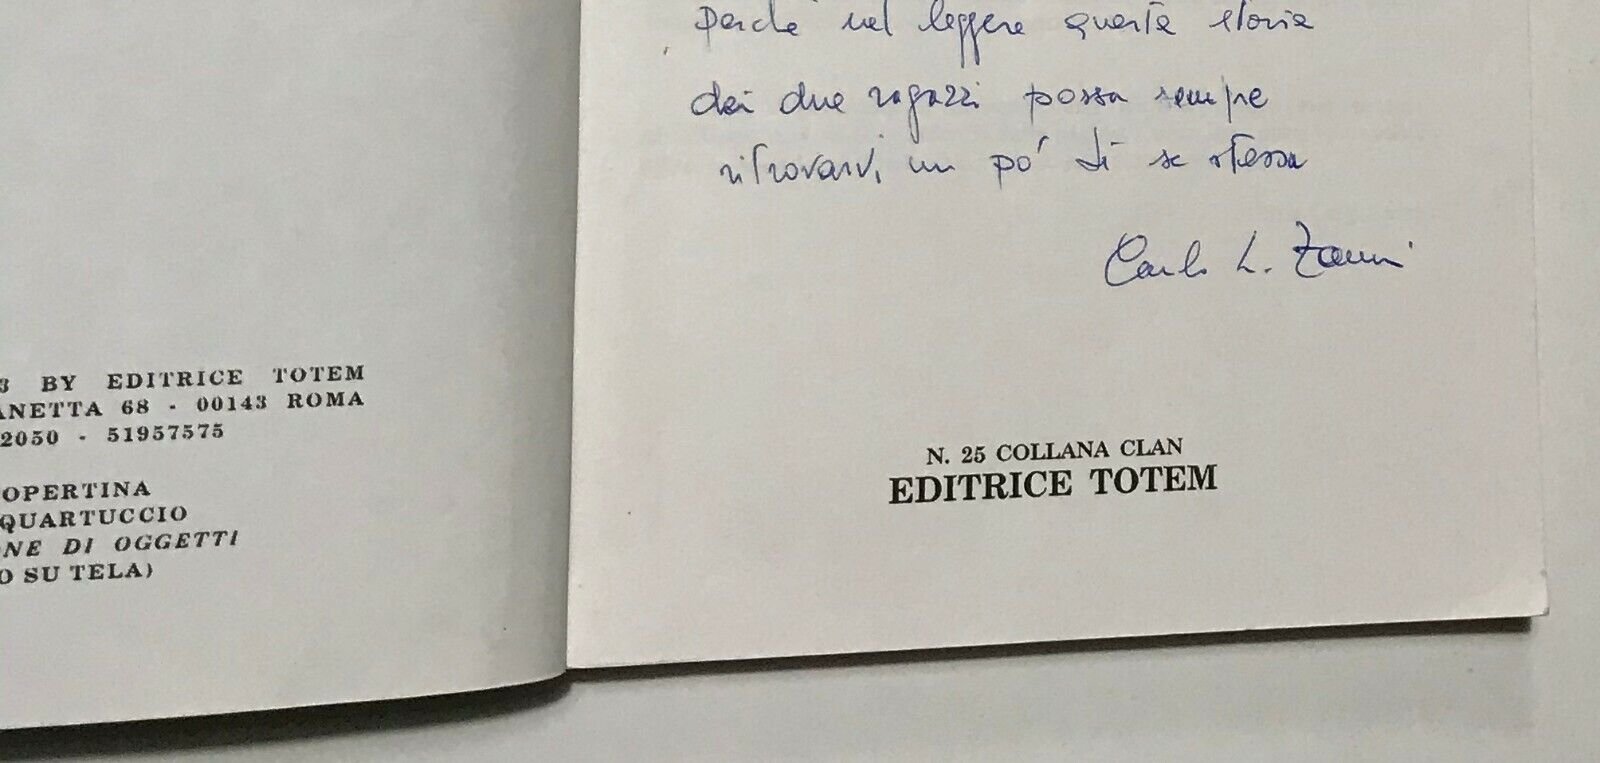 3 BY EDITRICE TOTEM
ANETTA 68 - 00143 ROMA
2050 - 51957575
OPERTINA
QUARTUCCIO
ONE DI OGGETTI
O SU TELA)
Perché nel leggere questa storia
dei due ragazzi possa sempre
ritrovarvi un po' di se stessa
Carlo L. Zanni
N. 25 COLLANA CLAN
EDITRICE TOTEM